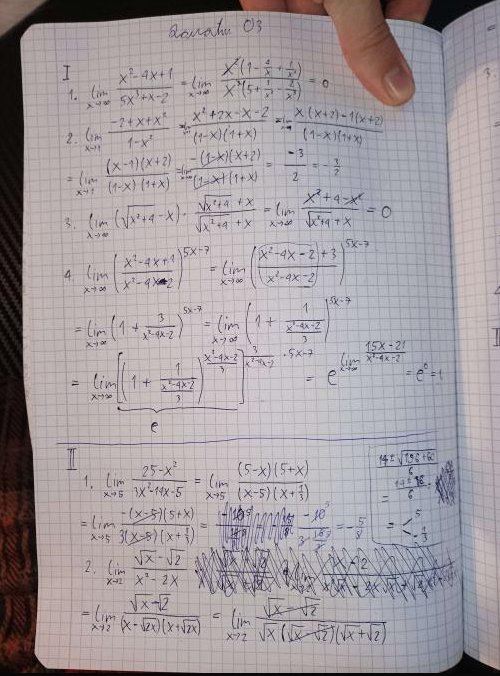 03
I
1. lim x→∞ (x²-4x+1)/(5x³+x-2) = lim x→∞ x²(1-4/x+1/x²)/x³(5+1/x²-2/x³) = 0
2. lim x→1 (-2+x+x²)/(1-x²) = lim (x²+2x-x-2)/((1-x)(1+x)) = lim (x(x+2)-1(x+2))/((1-x)(1+x))
= lim x→1 ((x-1)(x+2))/((1-x)(1+x)) = lim (-(1-x)(x+2))/((1-x)(1+x)) = -3/2 = -3/2
3. lim x→∞ (√(x²+4)-x) · (√(x²+4)+x)/(√(x²+4)+x) = lim x→∞ (x²+4-x²)/(√(x²+4)+x) = 0
4. lim x→∞ ((x²-4x+1)/(x²-4x-2))^(5x-7) = lim x→∞ (((x²-4x-2)+3)/(x²-4x-2))^(5x-7)
= lim x→∞ (1+3/(x²-4x-2))^(5x-7) = lim x→∞ (1+1/((x²-4x-2)/3))^(5x-7)
= lim x→∞ [(1+1/((x²-4x-2)/3))^((x²-4x-2)/3)]^(3/(x²-4x-2) · 5x-7) = e^(lim x→∞ (15x-21)/(x²-4x-2)) = e⁰ = 1
e
II
1. lim x→5 (25-x²)/(3x²-14x-5) = lim x→5 ((5-x)(5+x))/((x-5)(x+1/3))
= lim x→5 (-(x-5)(5+x))/(3(x-5)(x+1/3)) = -10/(3·16/3) = -5/8
6
= 6
= 5
-1/3
2. lim x→2 (√x-√2)/(x²-2x)
= lim x→2 (√x-√2)/((x-√2x)(x+√2x)) = lim x→2 (√x-√2)/(√x(√x-√2)(√x+√2))